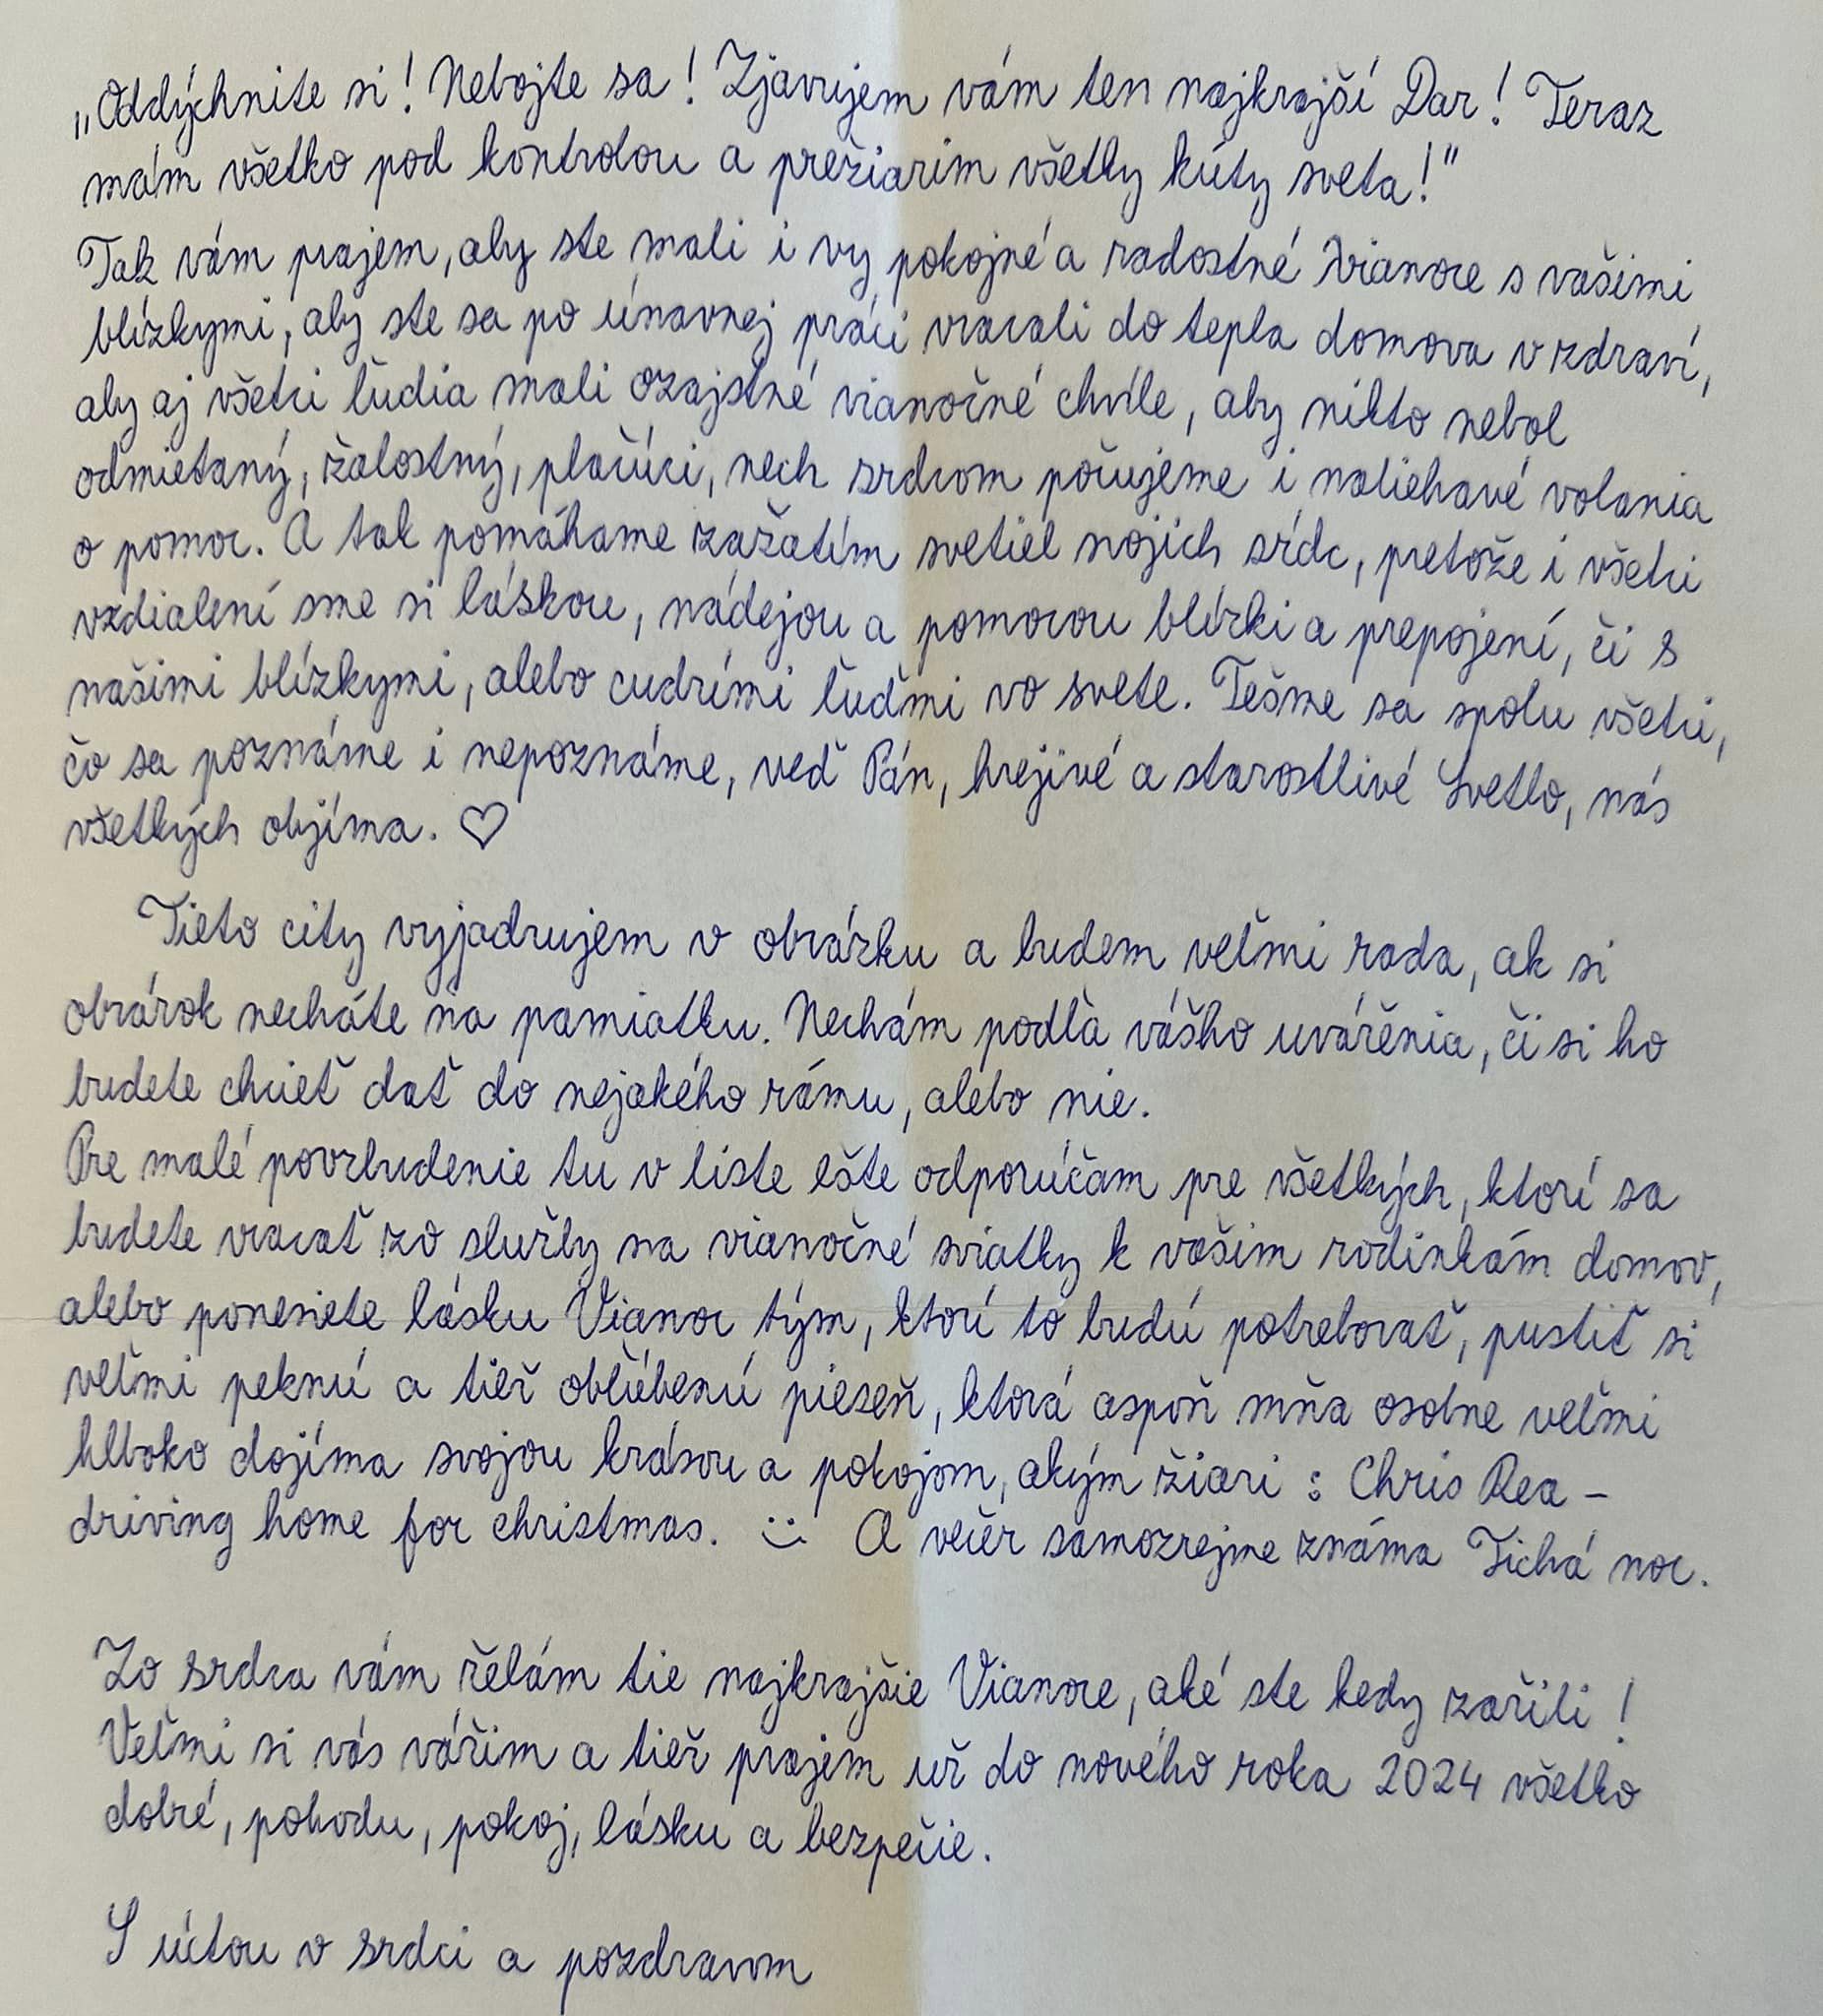 „Oddýchnite si! Nebojte sa! Zjavujem vám ten najkrajší Dar! Teraz
mám všetko pod kontrolou a prežiarim všetky kúty sveta!"
Tak vám prajem, aby ste mali i vy pokojné a radostné Vianoce s vašimi
blízkymi, aby ste sa po únavnej práci vracali do tepla domova v zdraví,
aby aj všetci ľudia mali ozajstné vianočné chvíle, aby nikto nebol
odmietaný, žalostný, plačúci, nech srdcom počujeme i naliehavé volania
o pomoc. A tak pomáhame zažatím svetiel svojich sŕdc, pretože i všetci
vzdialení sme si láskou, nádejou a pomocou blízki a prepojení, či s
našimi blízkymi, alebo cudzími ľuďmi vo svete. Tešme sa spolu všetci,
čo sa poznáme i nepoznáme, veď Pán, hrejivé a starostlivé Svetlo, nás
všetkých objíma. ♡
Tieto city vyjadrujem v obrázku a budem veľmi rada, ak si
obrázok necháte na pamiatku. Nechám podľa vášho uváženia, či si ho
budete chcieť dať do nejakého rámu, alebo nie.
Pre malé povzbudenie tu v liste ešte odporúčam pre všetkých, ktorí sa
budete vracať zo služby na vianočné sviatky k vašim rodinkám domov,
alebo ponesiete lásku Vianoc tým, ktorí to budú potrebovať, pustiť si
veľmi peknú a tiež obľúbenú pieseň, ktorá aspoň mňa osobne veľmi
hlboko dojíma svojou krásou a pokojom, akým žiari: Chris Rea –
driving home for christmas. :) A večer samozrejme známa Tichá noc.
Zo srdca vám želám tie najkrajšie Vianoce, aké ste kedy zažili!
Veľmi si vás vážim a tiež prajem už do nového roka 2024 všetko
dobré, pohodu, pokoj, lásku a bezpečie.
S úctou v srdci a pozdravom